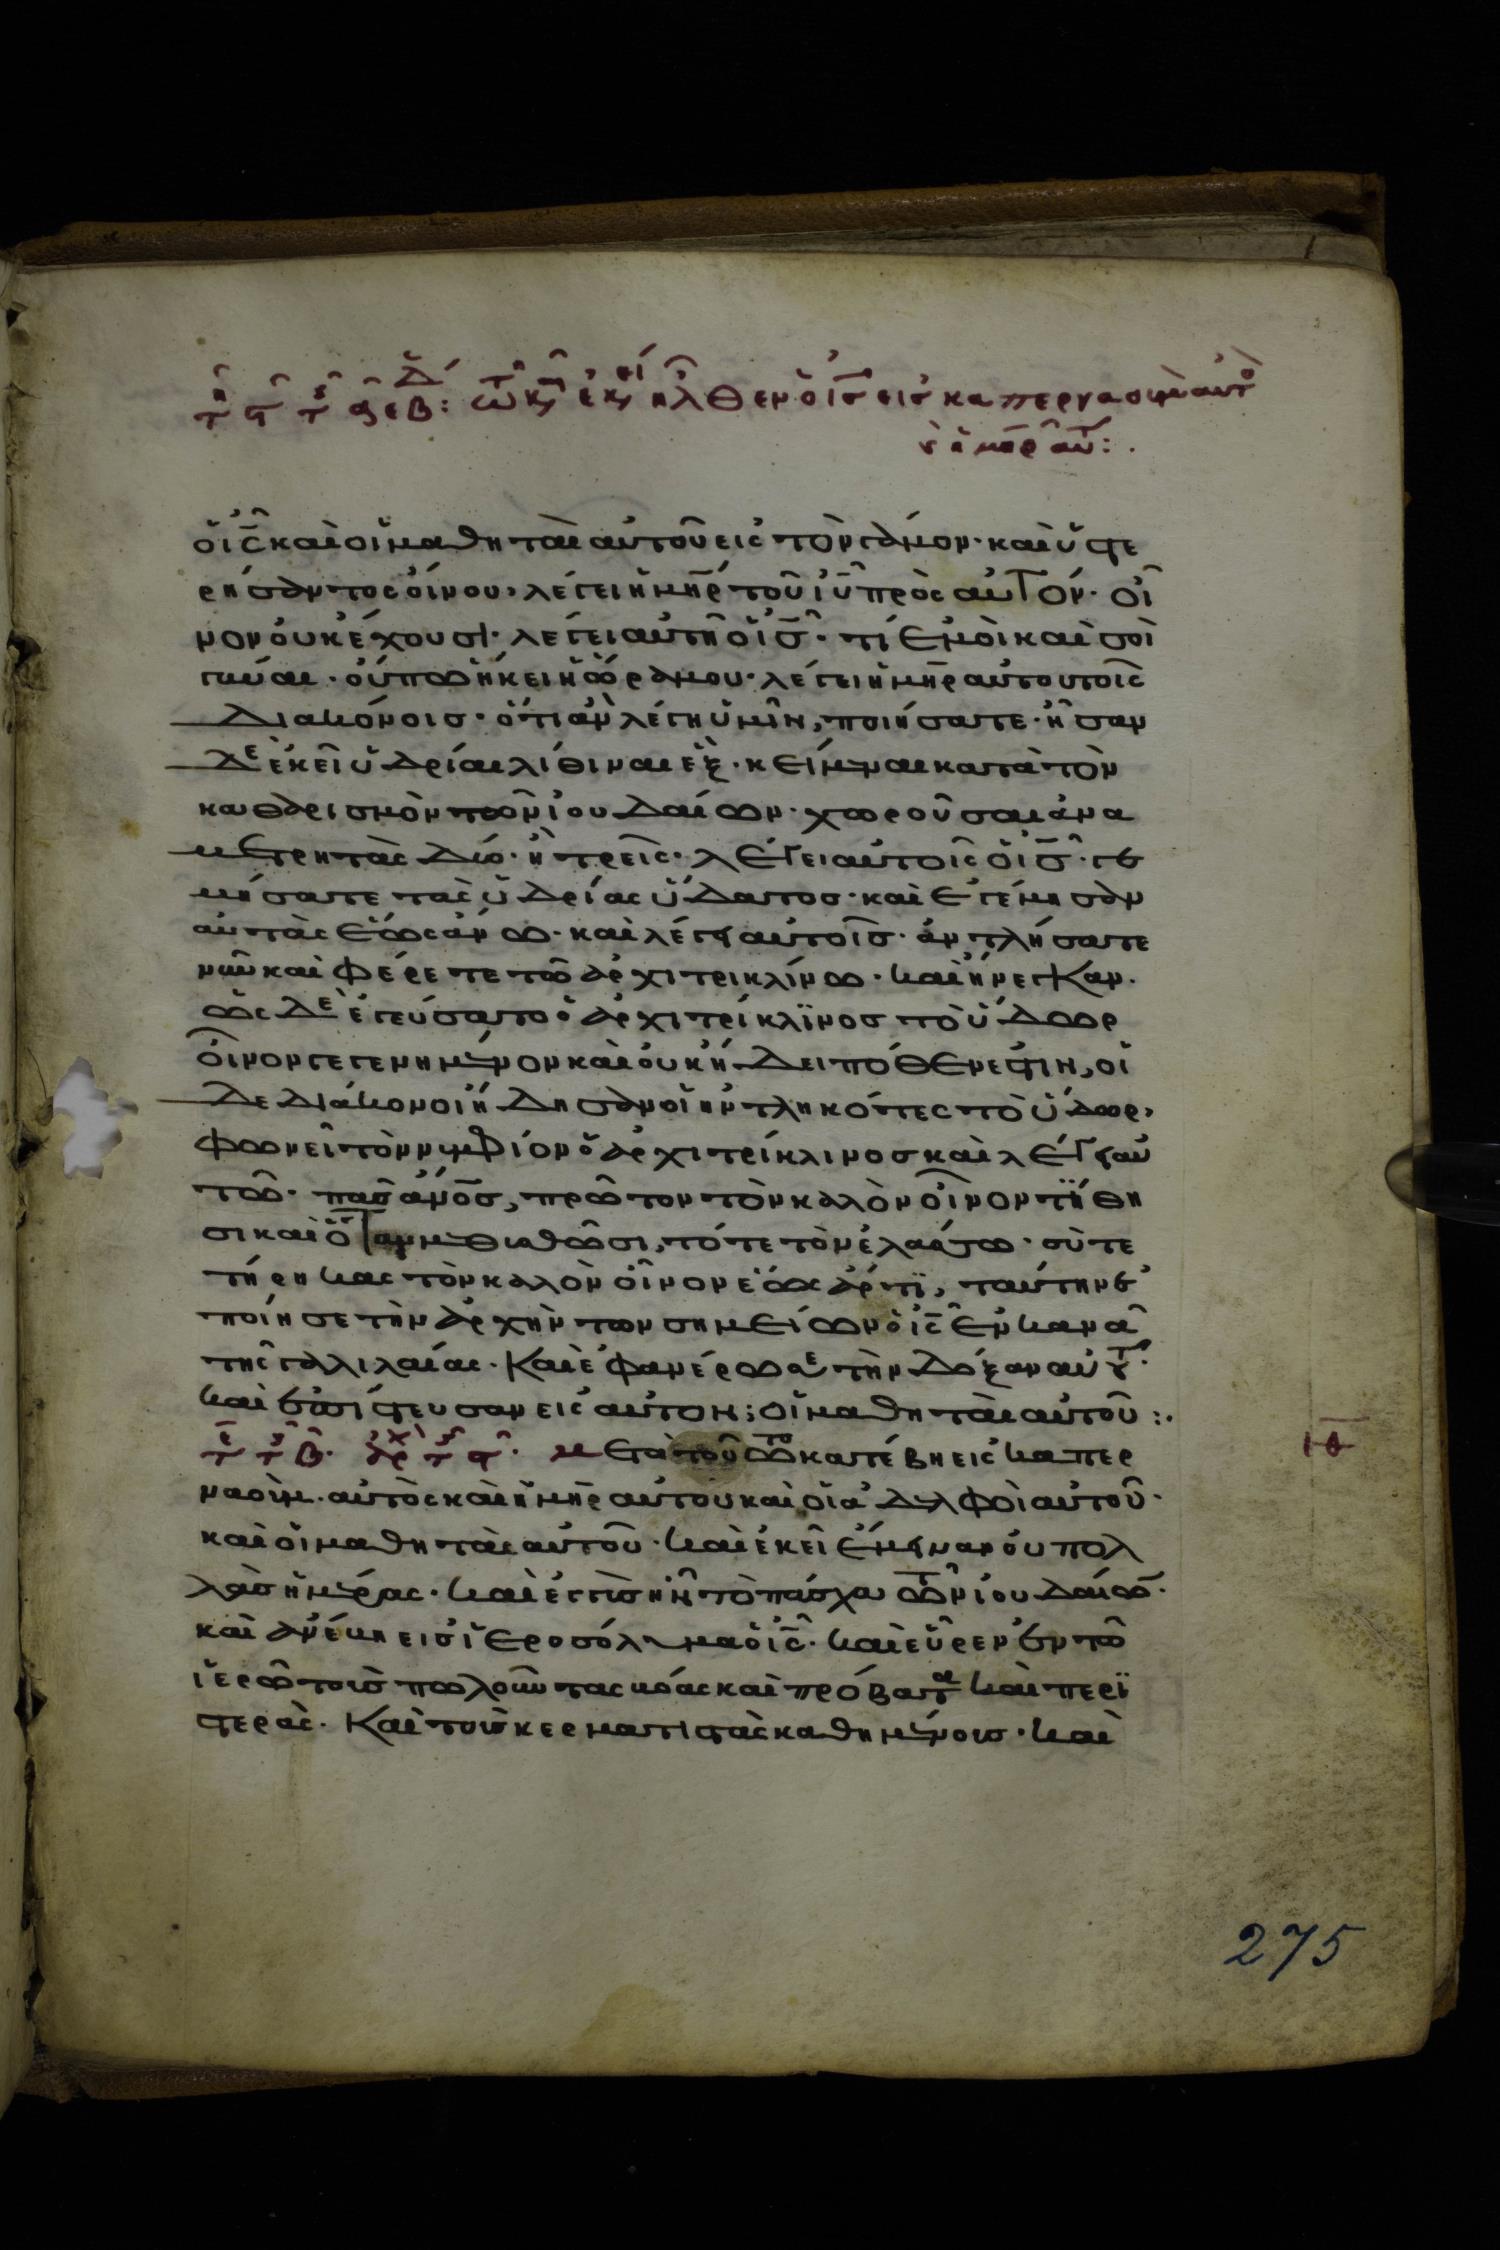 ἦλθεν ὁ ις εἰς καπερναουμ αυτο
κ η μηρ αυτ:.
ὁ ις καὶ οἱ μαθηταὶ αὐτοῦ εἰς τὸν γάμον· καὶ ὑστε
ρήσαντος οἴνου, λέγει ἡ μηρ τοῦ ιυ πρὸς αὐτόν· οἶ
νον οὐκ ἔχουσι· λέγει αὐτῆ ὁ ις· τί ἐμοὶ καὶ σοὶ
γύναι· οὔπω ἥκει ἡ ὥρα μου· λέγει ἡ μηρ αὐτοῦ τοῖς
διακόνοις· ὅτι ἀν λέγη ὑμῖν, ποιήσατε· ἦσαν
δὲ ἐκεῖ ὑδρίαι λίθιναι ἓξ· κείμεναι κατὰ τὸν
καθαρισμὸν τῶν ἰουδαίων· χωροῦσαι ἀνα
μετρητὰς δύο· ἢ τρεῖς· λέγει αὐτοῖς ὁ ις· γε
μήσατε τὰς ὑδρίας ὕδατος· καὶ ἐγέμησαν
αὐτὰς ἕως ἄνω· καὶ λέγει αὐτοῖς· ἀντλήσατε
νῦν καὶ φέρετε τῶ ἀρχιτρικλίνω· καὶ ἤνεγκαν·
ὡς δὲ ἐγεύσατο ὁ ἀρχιτρίκλϊνος τὸ ὕδωρ
οἶνον γεγενημένον καὶ οὐκ ἤδει πόθεν ἐστιν, οἱ
δὲ διάκονοι ἤδησαν οἱ ἠντληκότες τὸ ὕδωρ,
φωνεῖ τὸν νυμφίον ὁ ἀρχιτρίκλινος καὶ λέγει αὐ
τῶ· πᾶς ἀνος, πρῶτον τὸν καλὸν οἶνον τϊθη
σι καὶ ὅταν μεθυσθῶσι, τότε τὸν ἐλάσσω· σὺ τε
τήρηκας τὸν καλὸν οἶνον ἕως ἄρτϊ, ταύτην ἐ
ποίησε τὴν ἀρχὴν των σημείων ὁ ις ἐν κανᾶ
τῆς γαλιλαίας· καὶ ἐφανέρωσε τὴν δόξαν αὐτοῦ·
καὶ ἐπίστευσαν εἰς αὐτον· οἱ μαθηταὶ αὐτοῦ:·
μετὰ τοῦτο κατέβη εἰς καπερ
ναούμ· αὐτὸς καὶ ἡ μηρ αὐτοῦ καὶ οἱ ἀδελφοὶ αὐτοῦ·
καὶ οἱ μαθηταὶ αὐτοῦ· καὶ ἐκεῖ ἔμειναν οὐ πολ
λὰς ἡμέρας· καὶ ἐγγὺς ἦν τὸ πάσχα τῶν ἰουδαίων·
καὶ ἀνέβη εἰς ἱεροσόλυμα ὁ ις· καὶ εὗρεν ἐν τῶ
ἱερῶ τοὺς πωλοῦντας βόας καὶ πρόβατα καὶ περϊ
στερὰς· καὶ τοὺς κερματιστὰς καθημένους· καὶ
275